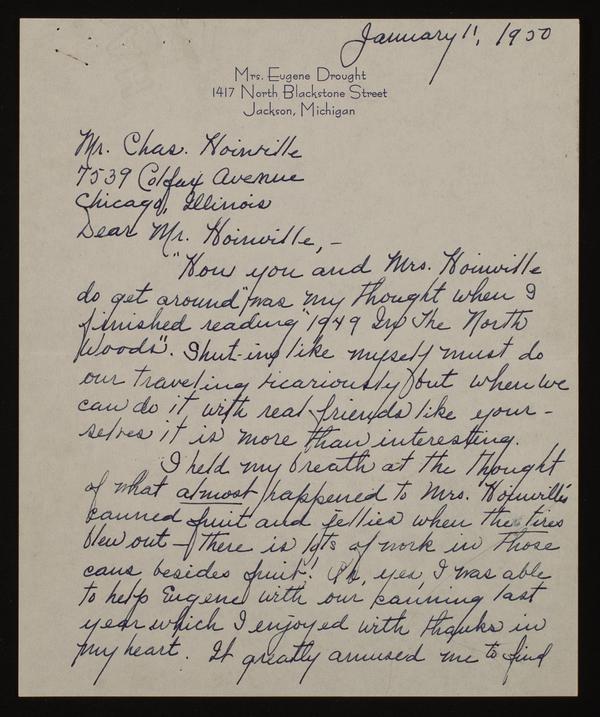 January 11, 1950
Mrs. Eugene Drought
1417 North Blackstone Street
Jackson, Michigan
Mr. Chas. Hoinville
7539 Colfax Avenue
Chicago, Illinois
Dear Mr. Hoinville,-
"How you and Mrs. Hoinville
do get around" was my thought when I
finished reading "1949 In The North
Woods". Shut-ins like myself must do
our traveling vicariously but when we
can do it with real friends like your-
selves it is more than interesting.
I held my breath at the thought
of what almost happened to Mrs. Hoinville's
canned fruit and jellies when the tires
blew out - there is lots of work in those
cans besides fruit! Oh, yes, I was able
to help Eugene with our canning last
year which I enjoyed with thanks in
my heart. It greatly amused me to find